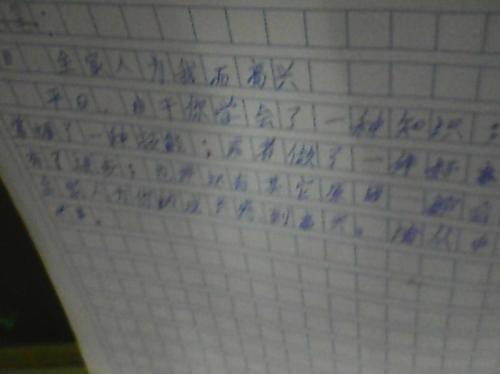 全家人为我而高兴
平日，由于你学会了一种知识；
掌握了一种技能；或者做了一种好
有了进步；因为其它原因 都会
全家人为你的 感到高兴。请从